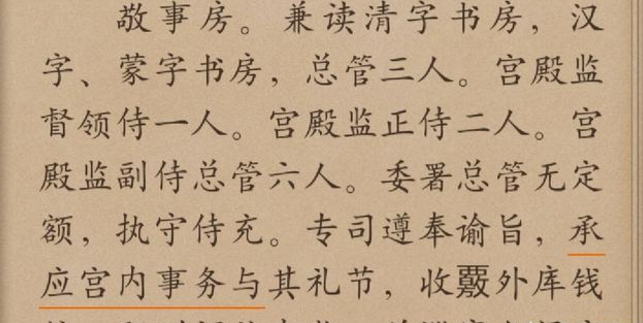 敬事房。兼读清字书房，汉
字、蒙字书房，总管三人。宫殿监
督领侍一人。宫殿监正侍二人。宫
殿监副侍总管六人。委署总管无定
额，执守侍充。专司遵奉谕旨，承
应宫内事务与其礼节，收覈外库钱